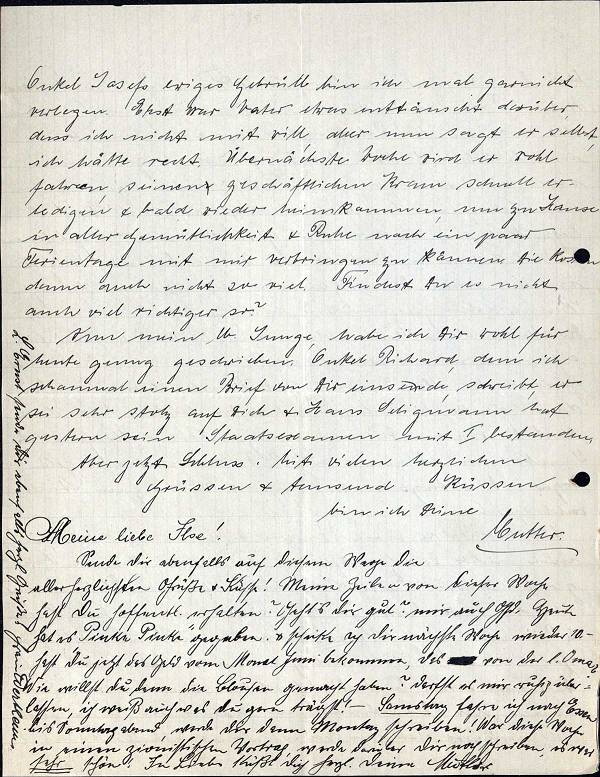 Onkel Josefs ewiges Gebrüll bin ich mal garnicht
verlegen. Erst war Vater etwas enttäuscht darüber,
dass ich nicht mit will aber nun sagt er selbst,
ich hätte recht. Übernächste Woche wird er wohl
fahren, seinen geschäftlichen Kram schnell er-
ledigen & bald wieder heimkommen, um zu Hause
in aller Gemütlichkeit & Ruhe noch ein paar
Ferientage mit mir verbringen zu können. Die Kosten
dann auch nicht so viel. Findest Du es nicht
auch viel richtiger so?
Nun mein lb. Junge, habe ich Dir wohl für
heute genug geschrieben. Onkel Richard, dem ich
einen Brief von Dir einsende, schreibt er
sei sehr stolz auf Dich & Hans Seligmann hat
gestern sein Staatsexamen mit I bestanden.
Aber jetzt Schluss. Mit vielen herzlichen
Grüssen & tausend Küssen
bin ich Deine
Mutter.
Meine liebe Ilse!
Sende dir ebenfalls auf diesem Wege die
allerherzlichsten Grüße & Küsse! Meine Zeilen von dieser Woche
hast Du hoffentl. erhalten? Geht's dir gut? mir auch Gsd. Heute
hat es Pinke Pinke gegeben. & schicke ich dir nächste Woche wieder 10.-
hast du jetzt das Geld vom Monat Juni bekommen, das von der l. Oma?
Wie willst du denn die Blousen gemacht haben? darfst es mir ruhig über-
lassen, ich weiß auch was du gern trägst! – Samstag fahre ich nach Essen
bis Sonntagabend, werde dir dann Montag schreiben. War diese Woche
in einem zionistischen Vortrag, werde darüber dir noch schreiben, es war
sehr schön! In Liebe küßt dich herzl. deine Mutter
L. Ernst sende dir ebenfalls herzl. Grüße! Frau